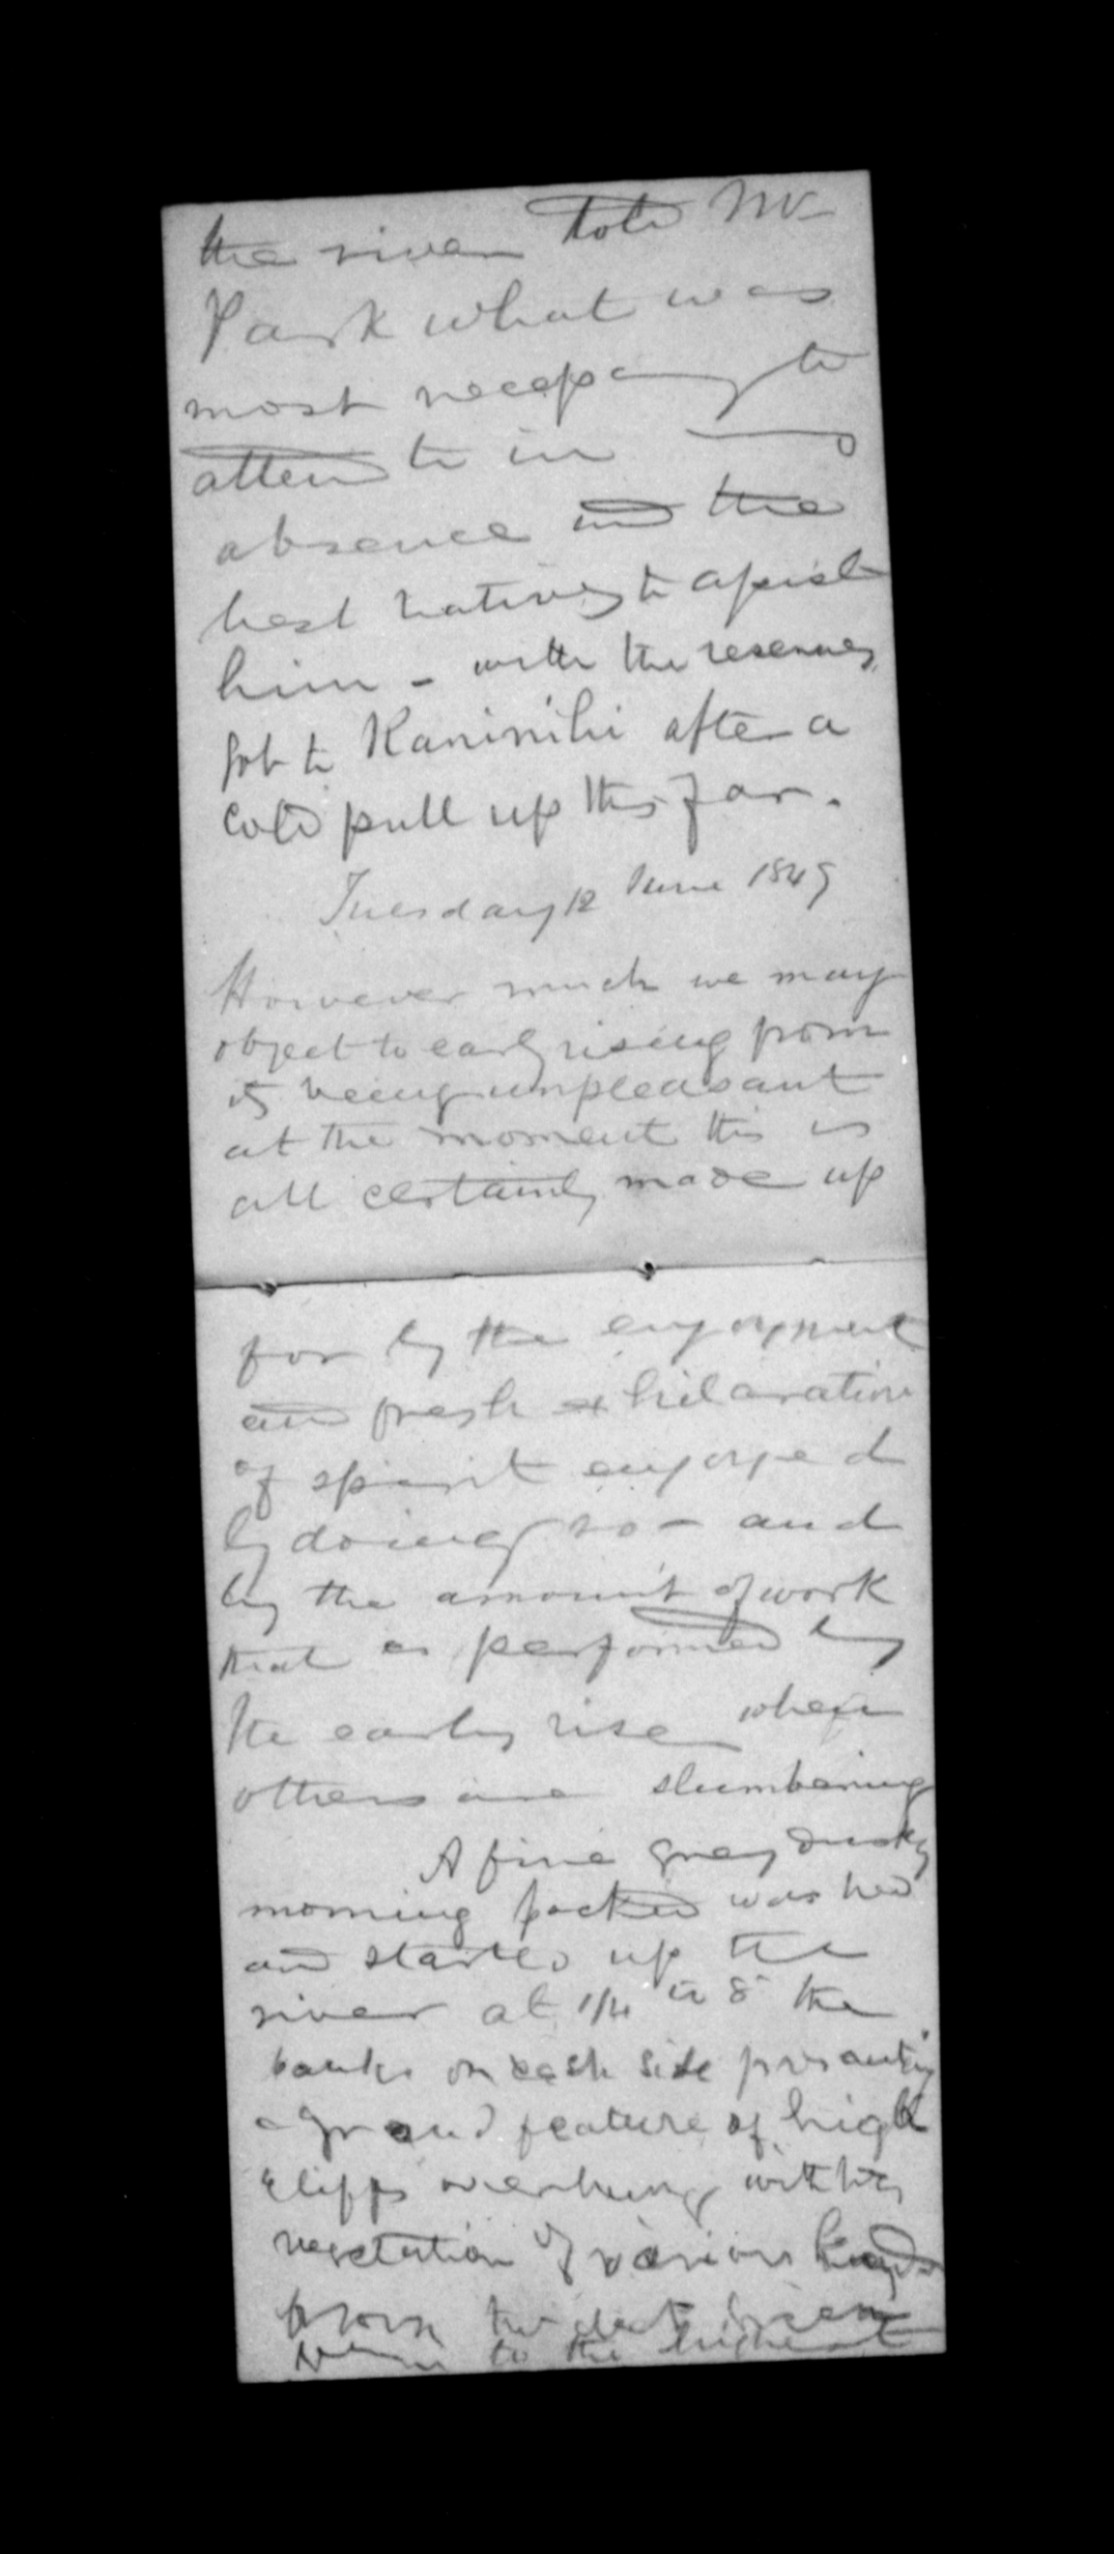 the river told Mr
Park what was
most necessary to
attend to in my
absence and the
best natives to assist
him - with the reserves
got to Kaninihi after a
cold pull up this far.
Tuesday 12 June 1849
However much we may
object to early rising from
its being unpleasant
at the moment this is
all certainly made up
for by the enjoyment
and fresh exhilaration
of spirit enjoyed
by doing so - and
by the amount of work
that is performed by
the early rise when
others are slumbering
A fine grey dusky
morning packed washed
and started up the
river at 1/4 to 8 the
banks on each side presenting
a grand feature of high
cliffs overhung with
vegetation of various kinds
from the
to the highest